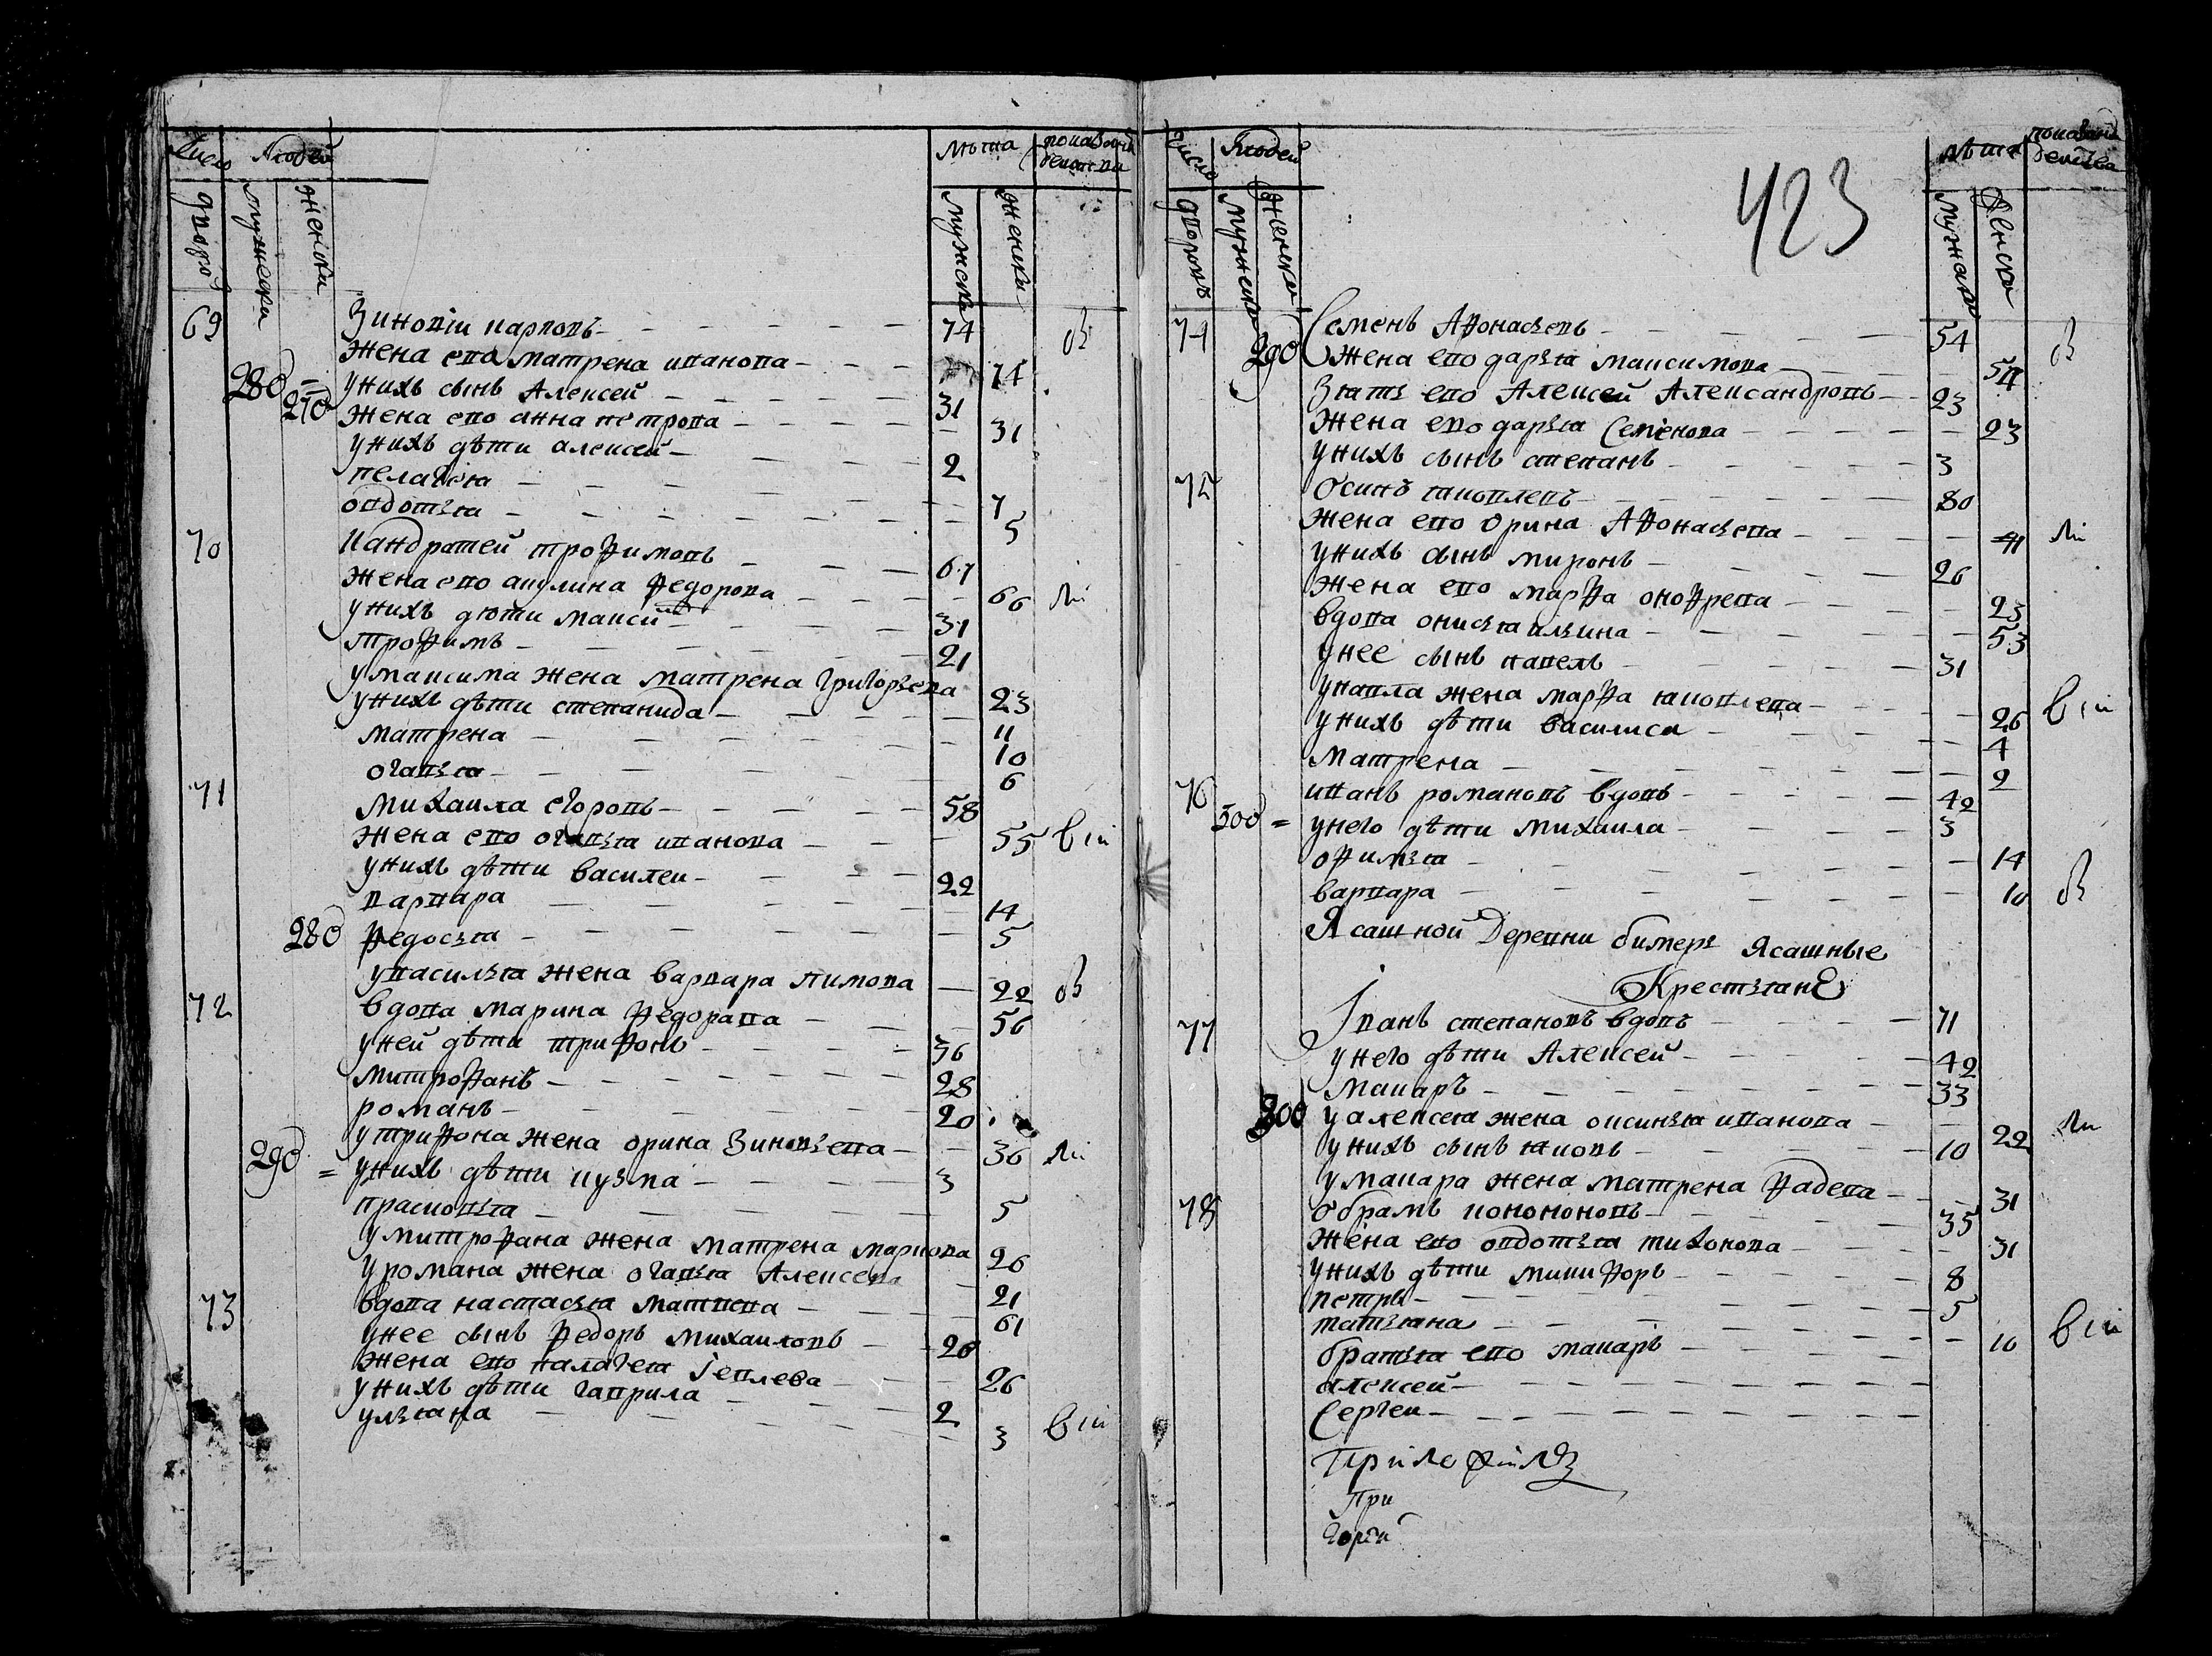 число Людей лѣта показани
дворов мужеска женска мужеска женска
69 Зиновiи карповъ 74 об
жена ево матрена иванова 74
280 = унихъ сынъ Алексей 31
270 жена ево анна петрова 31
унихъ дѣти алексей 2
пелагѣя 7
овдотья 5
70 Кандратей трофимовъ 67
жена ево акулина федорова 66
унихъ дѣти макси 31
трофимъ 21
умаксима жена матрена григорьева 23
унихъ дѣти степанида 11
матрена 10
огапья 6
71 михаила егоровъ 58
жена ево огапья иванова 55
унихъ дѣти василеи 22
варвара 14
280 федосья 5
увасилья жена варвара пимова 22 об
72 вдова марина федорава 56
уней дѣти трифонъ 36
митрофанъ 28
романъ 20
утрифона жена орина Зиновьева 36
290 = унихъ дѣти кузма 3
прасковья 5
умитрофана жена матрена маркова 26
уромана жена огапья Алексева 21
73 вдова настасья матвева 61
унее сынъ федоръ михаиловъ 26
жена ево палагея iевлева 26
унихъ дѣти гаврила 2
ульяна 3
423
число Людей лѣта
дворовъ мужеска женска мужеска женска
74 Семенъ Афонасьевъ 54 об
290 жена ево дарья максимова 54
Зять ево Алексей Александровъ 23
жена ево дарья Семiенова 23
унихъ сынъ степанъ 3
75 Осипъ яковлевъ 80
жена ево орина Афонасьева 41
унихъ сынъ миронъ 26
жена ево марфа онофрева 23
вдова онисья ильина 53
унее сынъ павелъ 31
упавла жена марфа яковлева 26
унихъ дѣти василиса 4
матрена 2
76 иванъ романовъ вдовъ 42
300 = унего дѣти михаила 3
офимья 14
варвара 10 об
Ясашной Деревни бимерь Ясашные
Крестьяне
77 Iванъ степановъ вдовъ 71
унего дѣти Алексей 42
макаръ 33
300 уалексея жена оксинья иванова 22
унихъ сынъ яковъ 10
умакара жена матрена фадева 31
78 Обрамъ конононовъ 35
жена ево овдотья тихонова 31
унихъ дѣти микифоръ 8
петръ 5
татьяна 10
братья ево макаръ
алексей
Сергеи
При